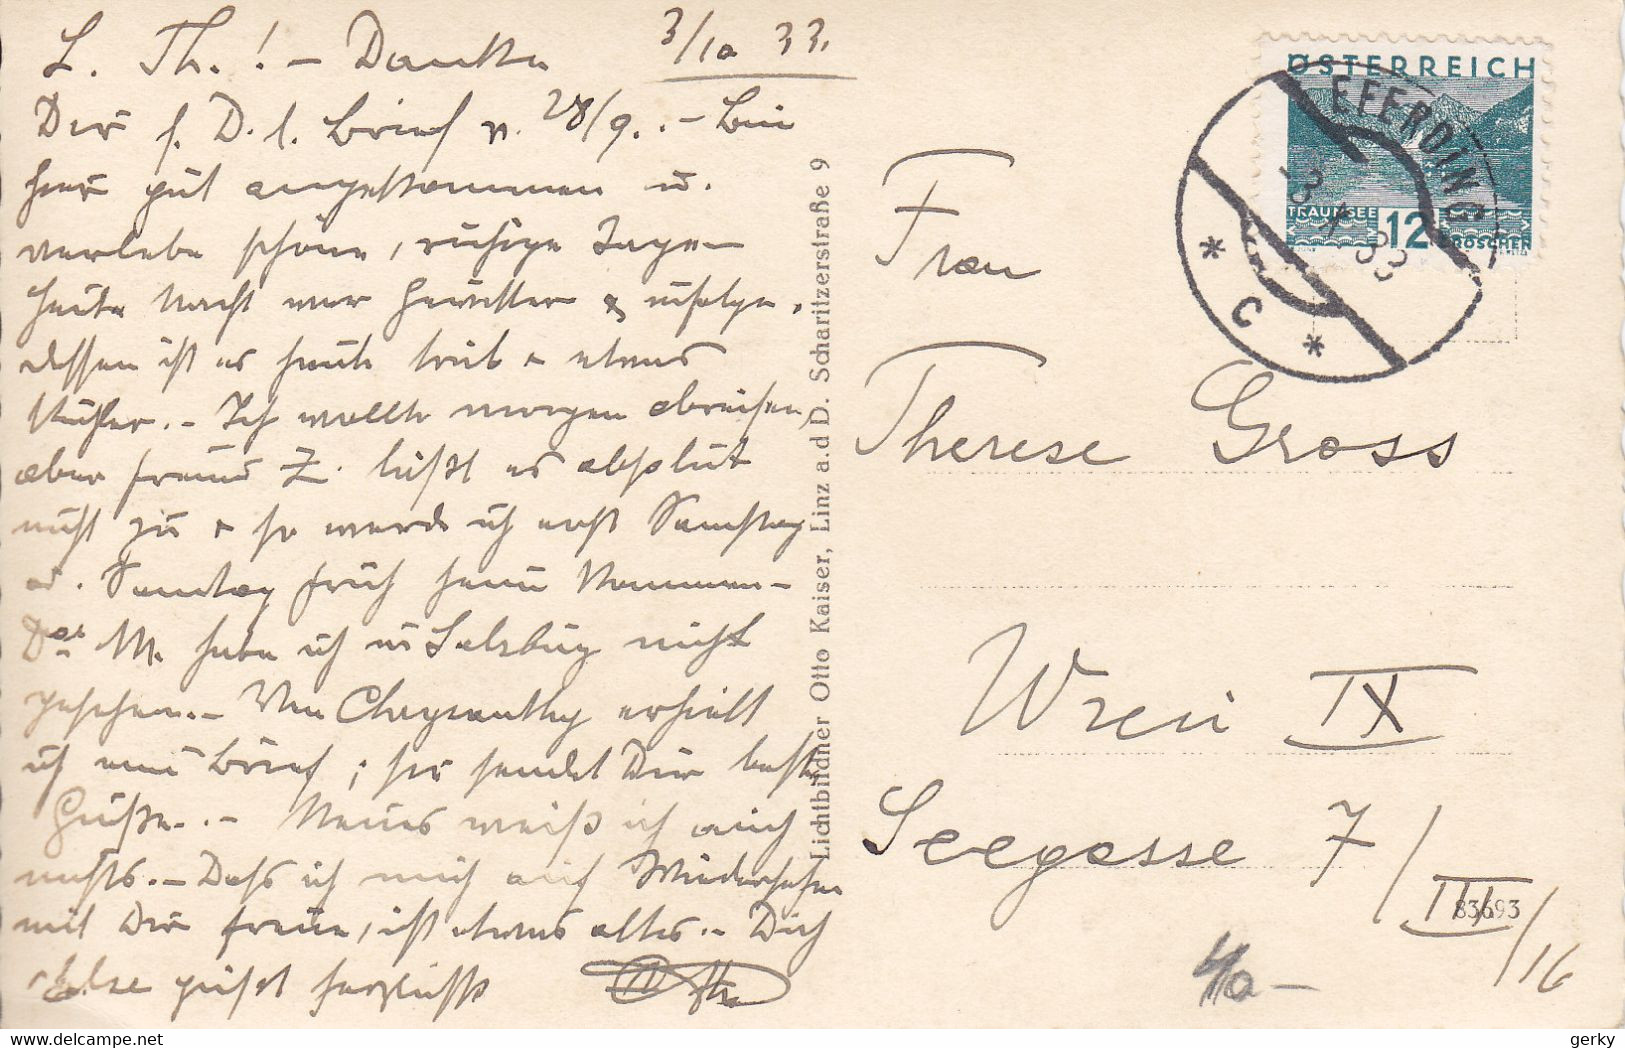 L. Th.! – Danke 3/10 33.
Dir f. D. l. Brief v. 28/9. – Bin
hier gut angekommen u.
verlebe schöne, ruhige Tage –
heute Nacht war Gewitter & infolge
dessen ist es heute trüb & etwas
kühler. – Ich wollte morgen abreisen,
aber Freund Z. läßt es absolut
nicht zu & so werde ich erst Samstag
od. Sonntag früh kommen –
M. habe ich in Salzburg nicht
gesehen. – Von Chrysanthy erhielt
ich einen Brief; sie sendet Dir beste
Grüße. – Neues weiß ich auch
nichts. – Daß ich mich auf Wiedersehen
mit Dir freue, ist etwas altes. – Dich
grüßt herzlichst
Lichtbildner Otto Kaiser, Linz a.d D. Scharitzerstraße 9
ÖSTERREICH
TRAUNSEE 12 GROSCHEN
EFERDING
* C *
Frau
Therese Gross
Wien IX
Seegasse 7/
III/16
83693
gerky